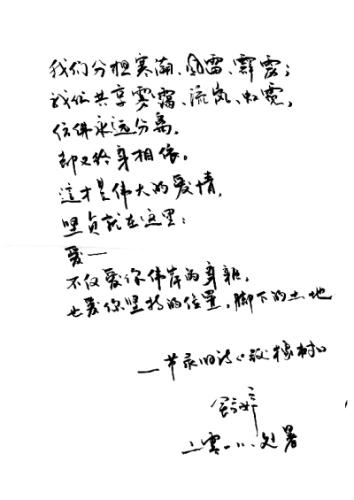 我们分担寒潮、风雷、霹雳；
我们共享雾霭、流岚、虹霓，
仿佛永远分离，
却又终身相依。
这才是伟大的爱情，
坚贞就在这里：
爱——
不仅爱你伟岸的身躯，
也爱你坚持的位置，脚下的土地
——节录旧诗《致橡树》
舒婷
二零一八、处暑